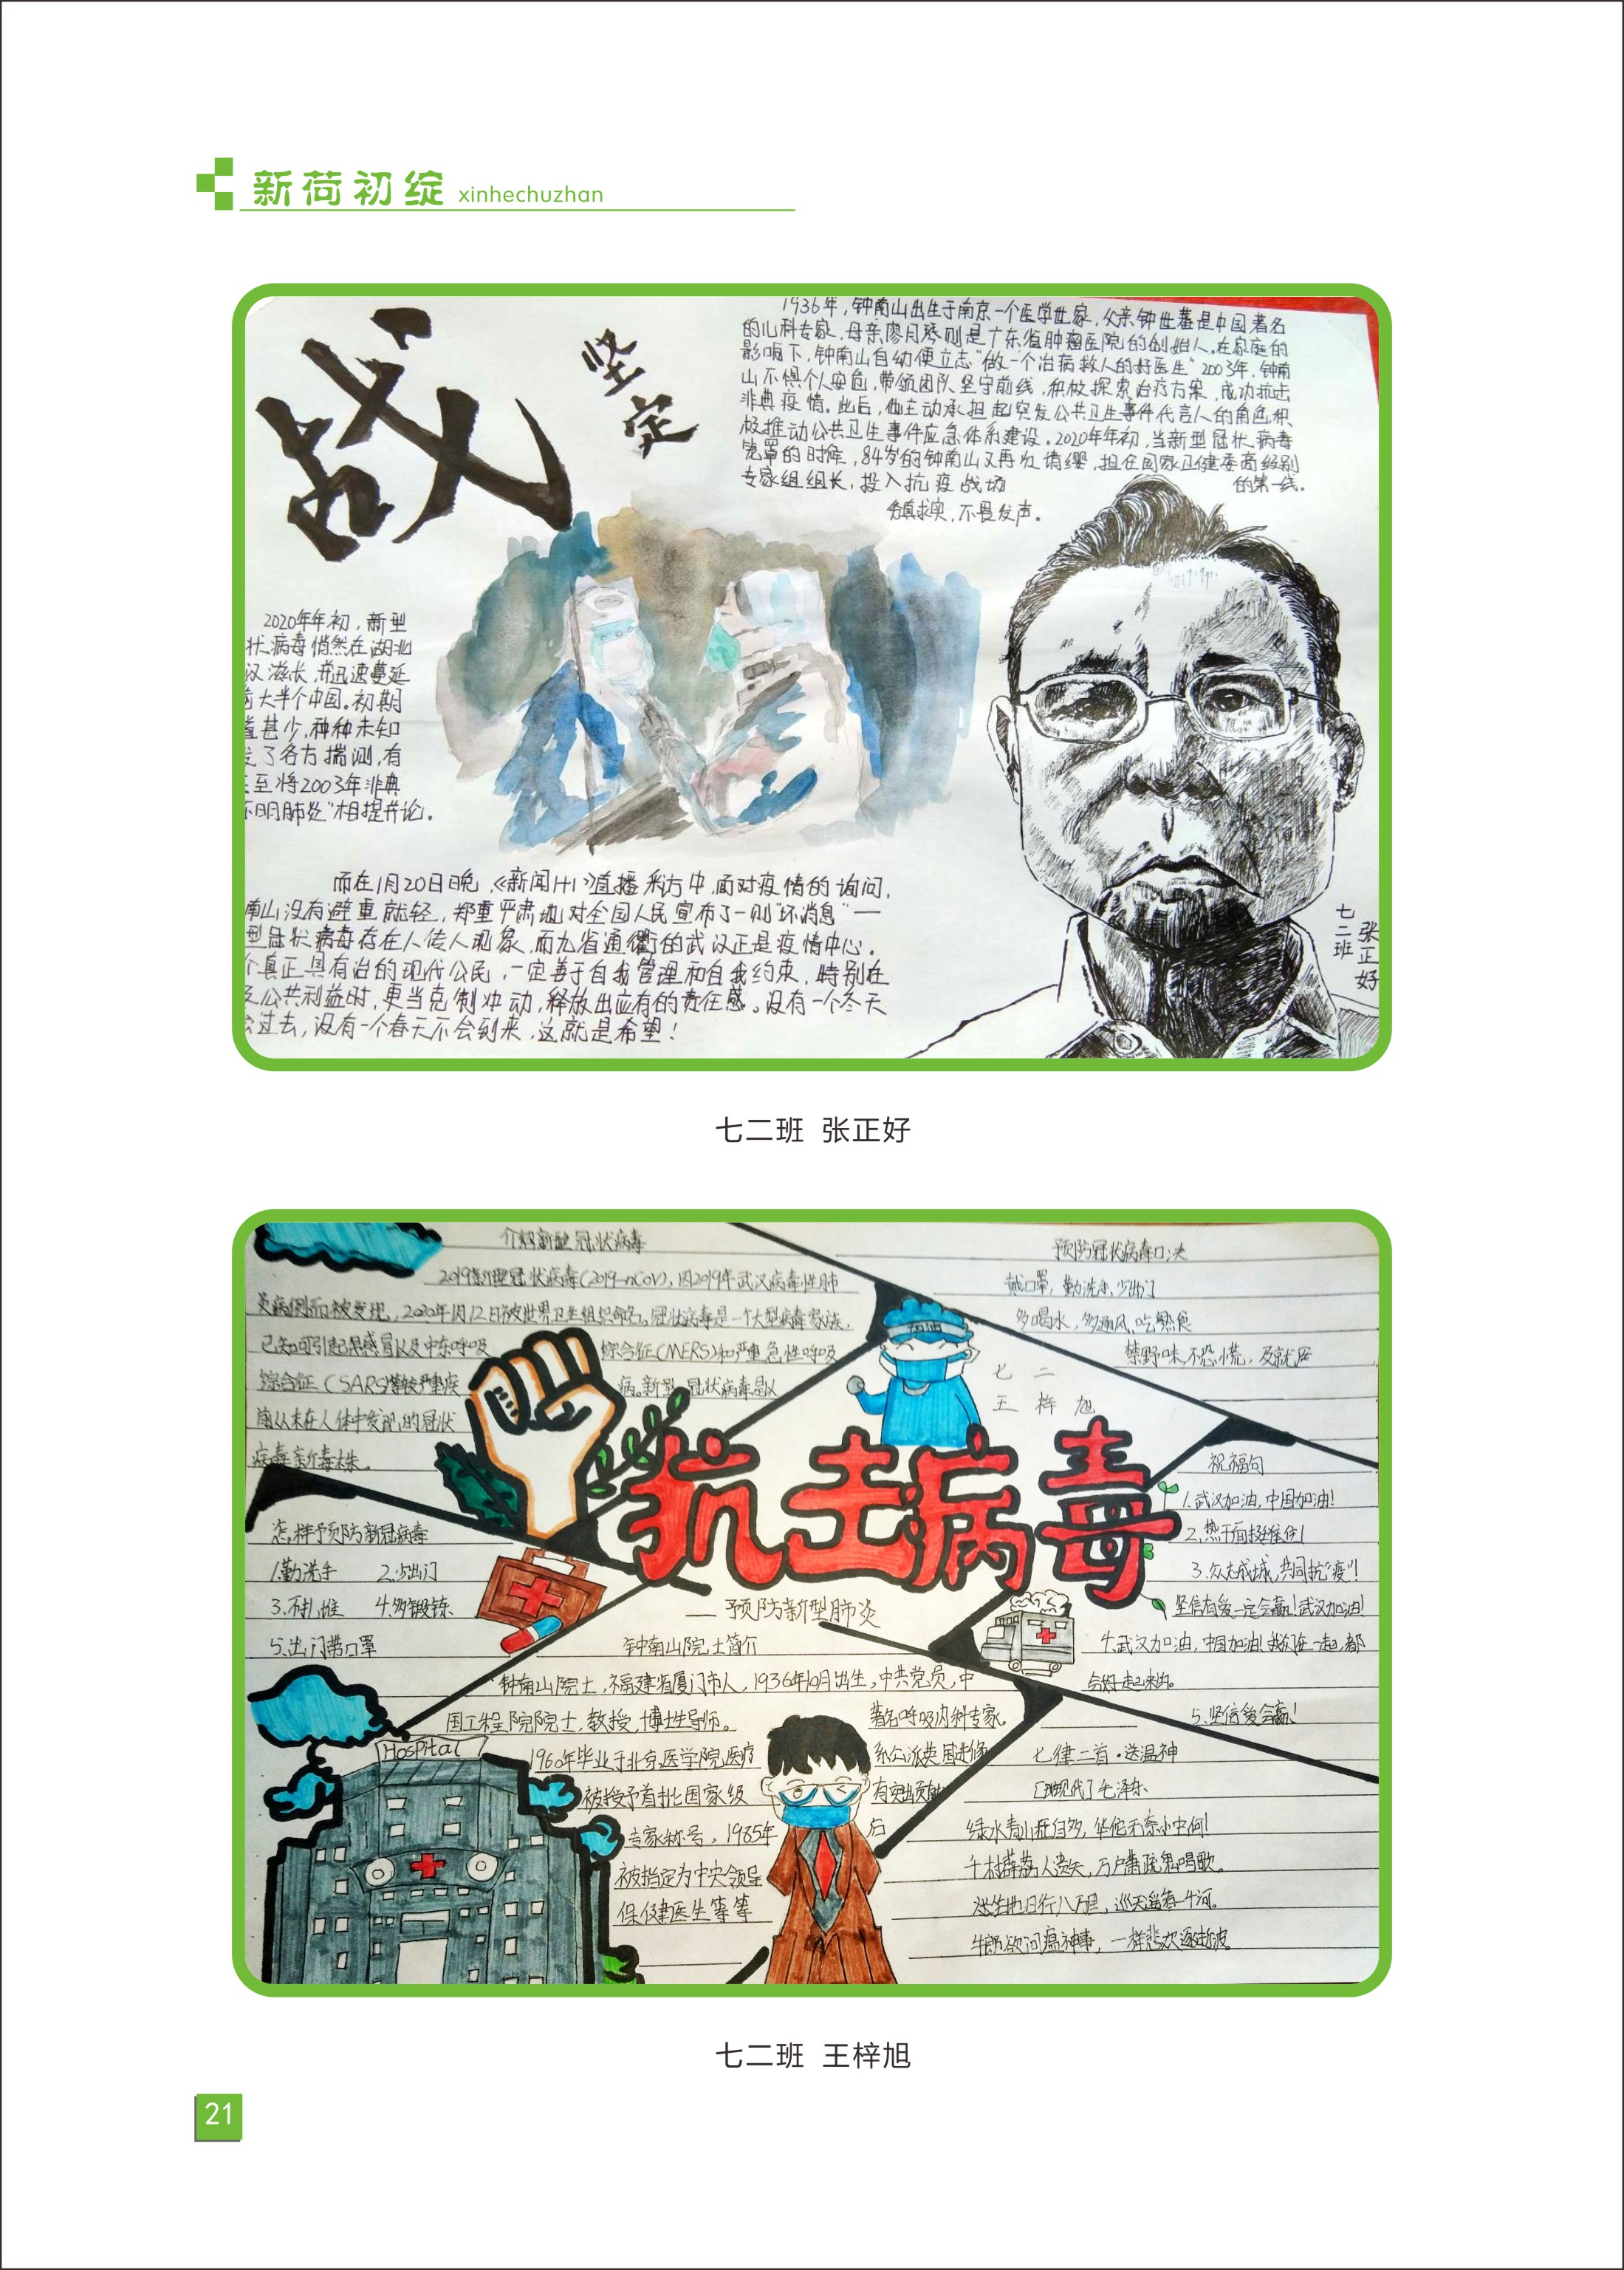 新荷初绽 xinhechuzhan
战
坚定
1936年，钟南山出生于南京一个医学世家，父亲钟世藩是中国著名
的儿科专家，母亲廖月琴则是广东省肿瘤医院的创始人。在家庭的
影响下，钟南山自幼便立志“做一个治病救人的好医生”2003年，钟南
山不惧个人安危，带领团队坚守前线，积极探索治疗方案，成功抗击
非典疫情。此后，他主动承担起突发公共卫生事件代言人的角色，积
极推动公共卫生事件应急体系建设。2020年年初，当新型冠状病毒
笼罩的时候，84岁的钟南山又再次请缨，担任国家卫健委高级别
专家组组长，投入抗疫战场的第一线。
务真求实，不畏发声。
2020年年初，新型
状病毒悄然在湖北
汉滋长，并迅速蔓延
大半个中国。初期
甚少，种种未知
了各方揣测，有
至将2003年非典
不明肺炎”相提并论。
而在1月20日晚，《新闻1+1》直播采访中，面对疫情的询问，
南山没有避重就轻，郑重严肃地对全国人民宣布了一则“坏消息”——
型冠状病毒存在人传人现象，而九省通衢的武汉正是疫情中心。
个真正具有治的现代公民，一定善于自我管理和自我约束，特别在
及公共利益时，更当克制冲动，释放出应有的责任感。没有一个冬天
会过去，没有一个春天不会到来，这就是希望！
七二班
张正好
七二班 张正好
介绍新型冠状病毒
2019新型冠状病毒(2019-nCoV)，因2019年武汉病毒性肺
炎病例而被发现，2020年1月12日被世界卫生组织命名。冠状病毒是一个大型病毒家族，
已知可引起感冒以及中东呼吸综合征(MERS)和严重急性呼吸
综合征(SARS)等较严重疾病。新型冠状病毒是以
前从未在人体中发现的冠状
病毒新毒株。
预防冠状病毒口决
戴口罩，勤洗手，少出门
多喝水，多通风，吃熟食
禁野味，不恐慌，及就医
七二
王梓旭
抗击病毒
——预防新型肺炎
怎样予预防新冠病毒
1.勤洗手 2.少出门
3.不扎堆 4.多锻炼
5.出门带口罩
祝福句
1.武汉加油，中国加油！
2.热干面挺住！
3.众志成城，共同抗“疫”！
坚信有爱一定会赢！武汉加油！
4.武汉加油，中国加油！我们在一起，都
会好起来的。
5.坚信爱会赢！
钟南山院士简介
钟南山院士，福建省厦门市人，1936年10月出生，中共党员，中
国工程院院士，教授，博士生导师。著名呼吸内科专家。
1960年毕业于北京医学院医疗系公派英国进修
被授予首批国家级有突出贡献
专家称号，1985年后
被指定为中央领导
保健医生等等
Hospital
七律二首·送温神
[现代]毛泽东
绿水青山枉自多，华佗无奈小虫何！
千村薜荔人遗矢，万户萧疏鬼唱歌。
坐地日行八万里，巡天遥看一千河。
牛郎欲问瘟神事，一样悲欢逐逝波
七二班 王梓旭
21